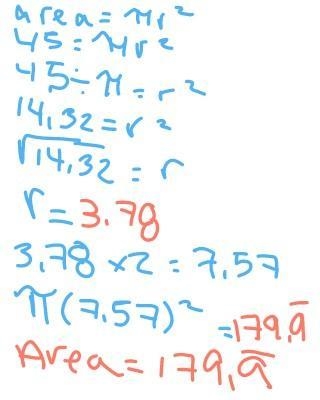 area = πr²
45 = πr²
45 ÷ π = r²
14,32 = r²
√14,32 = r
r = 3.78
3,78 × 2 = 7,57
π(7,57)² = 179,9̅
Area = 179,9̅